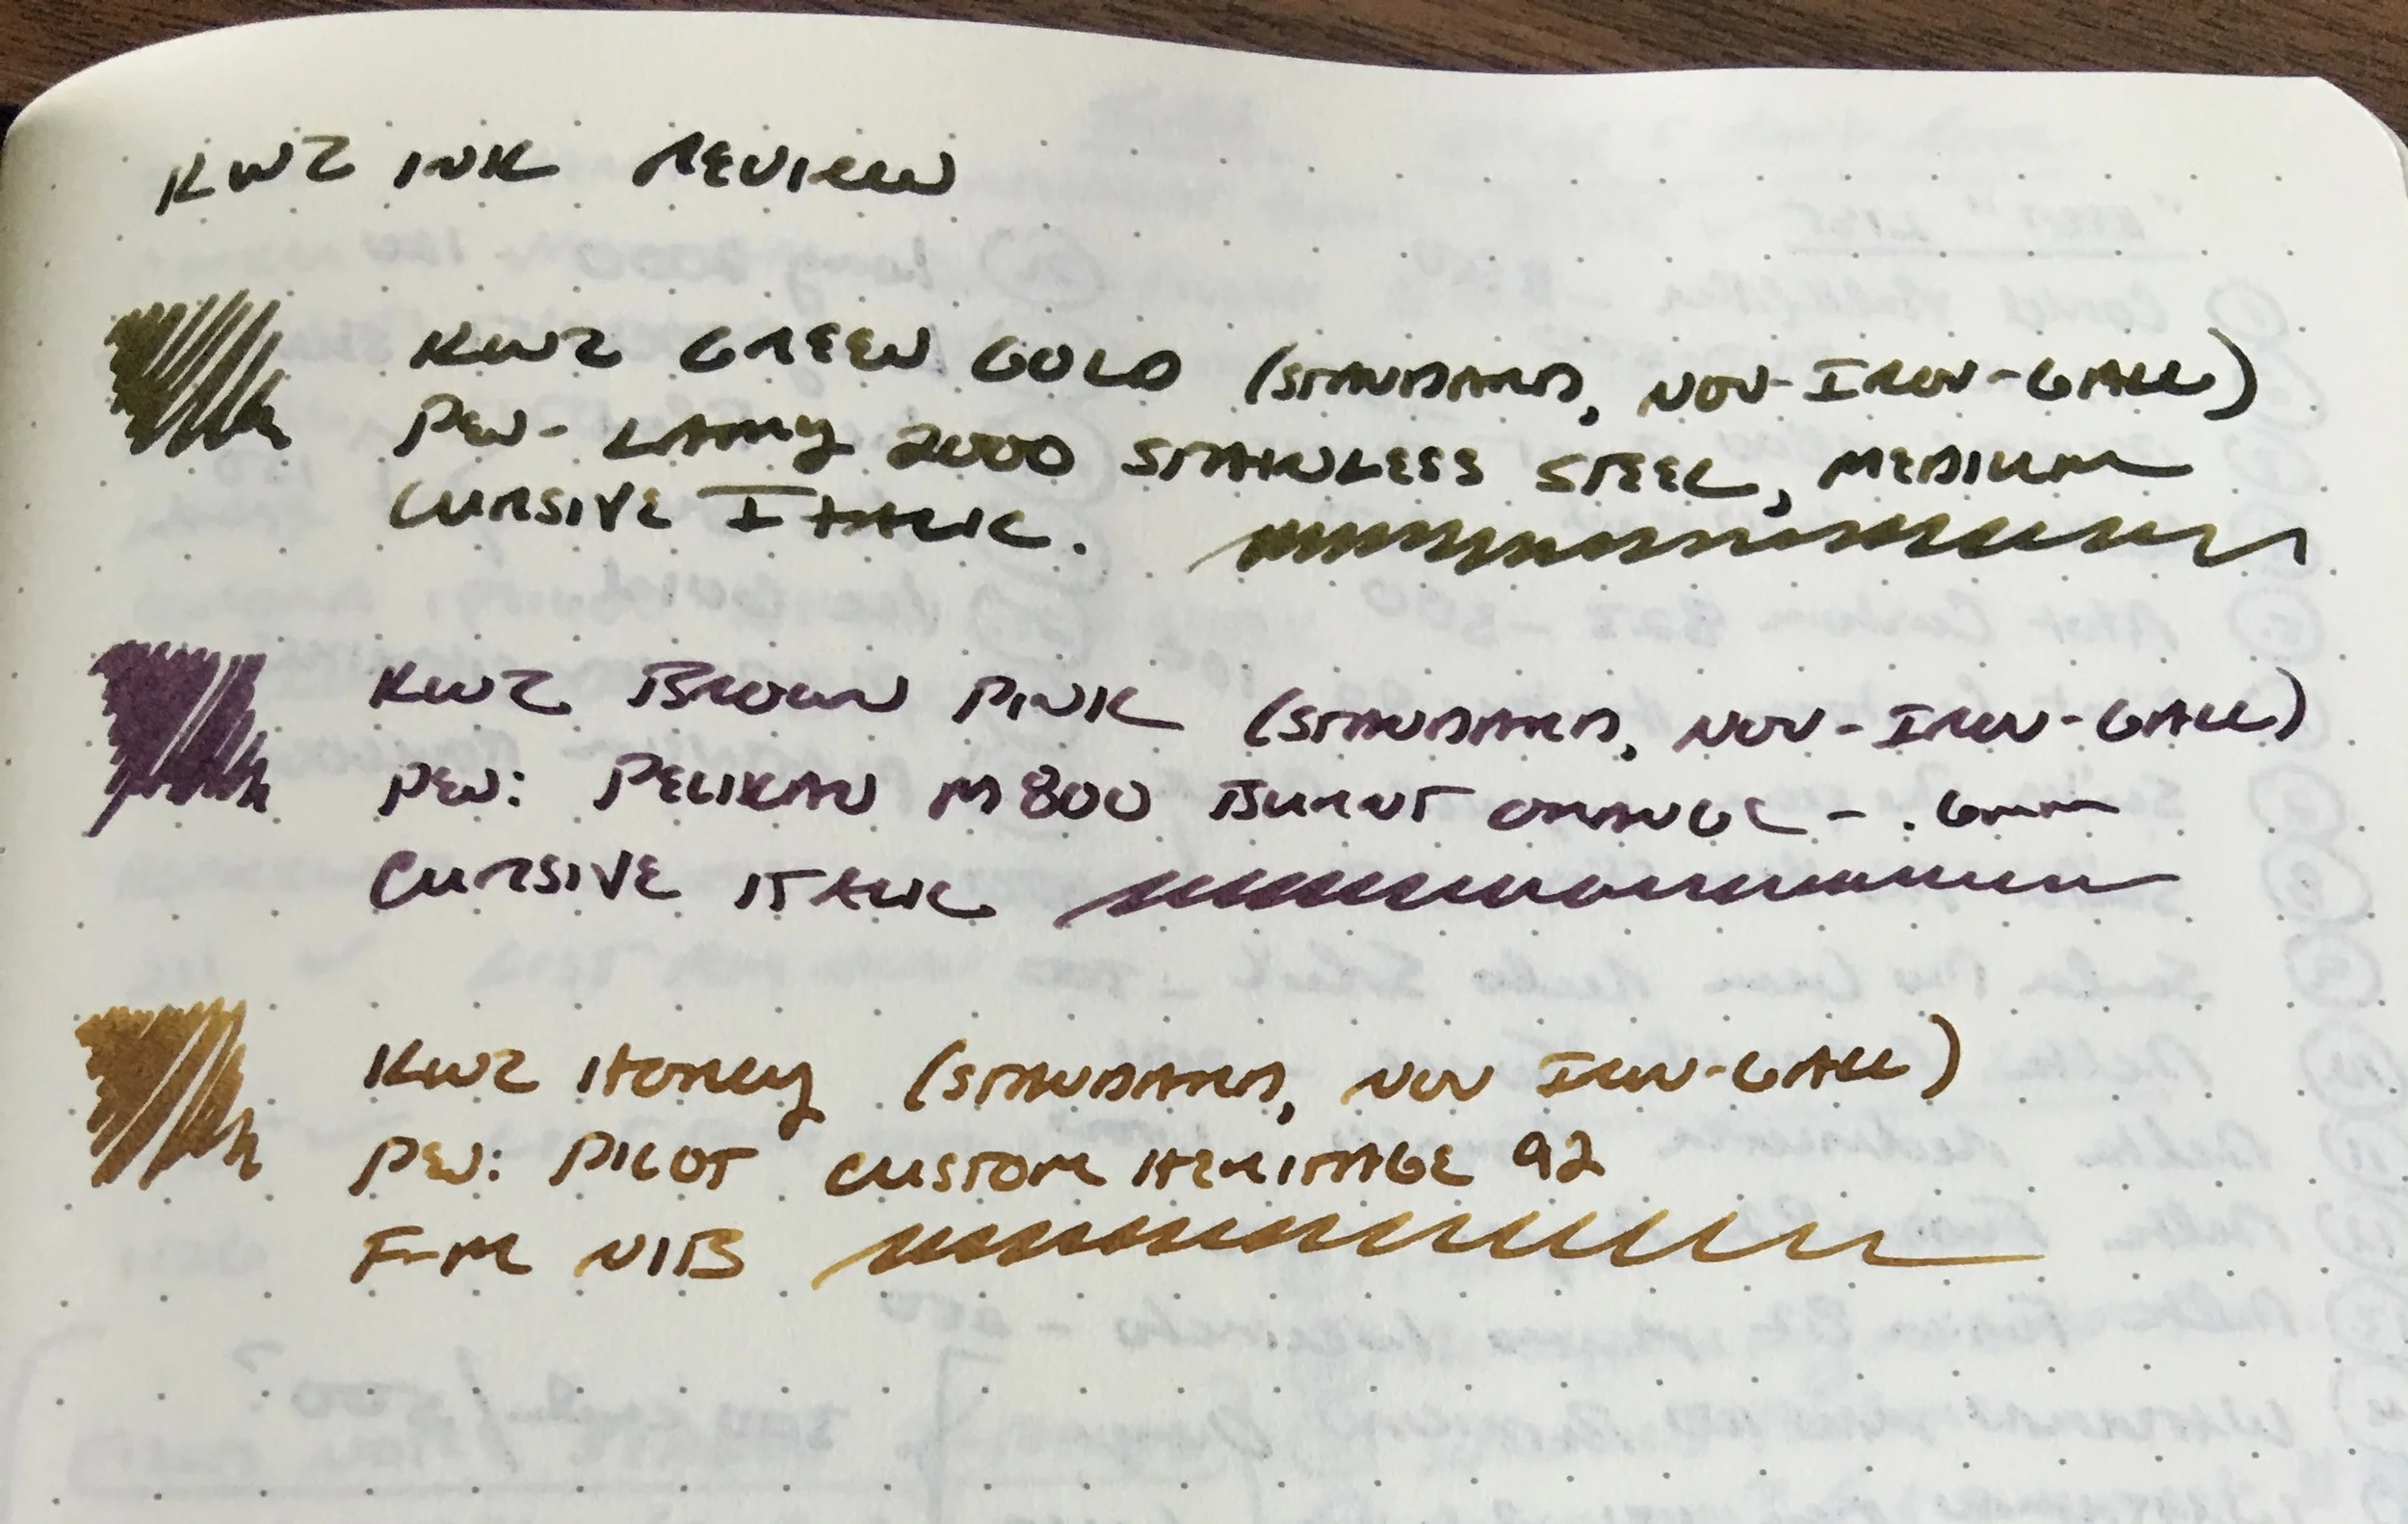 KWZ INK REVIEW
KWZ GREEN GOLD (STANDARD, NON-IRON-GALL)
PEN- LAMY 2000 STAINLESS STEEL, MEDIUM
CURSIVE ITALIC.
KWZ BROWN PINK (STANDARD, NON-IRON-GALL)
PEN: PELIKAN M800 BURNT ORANGE - .6mm
CURSIVE ITALIC
KWZ HONEY (STANDARD, NON IRON-GALL)
PEN: PILOT CUSTOM HERITAGE 92
F-M NIB